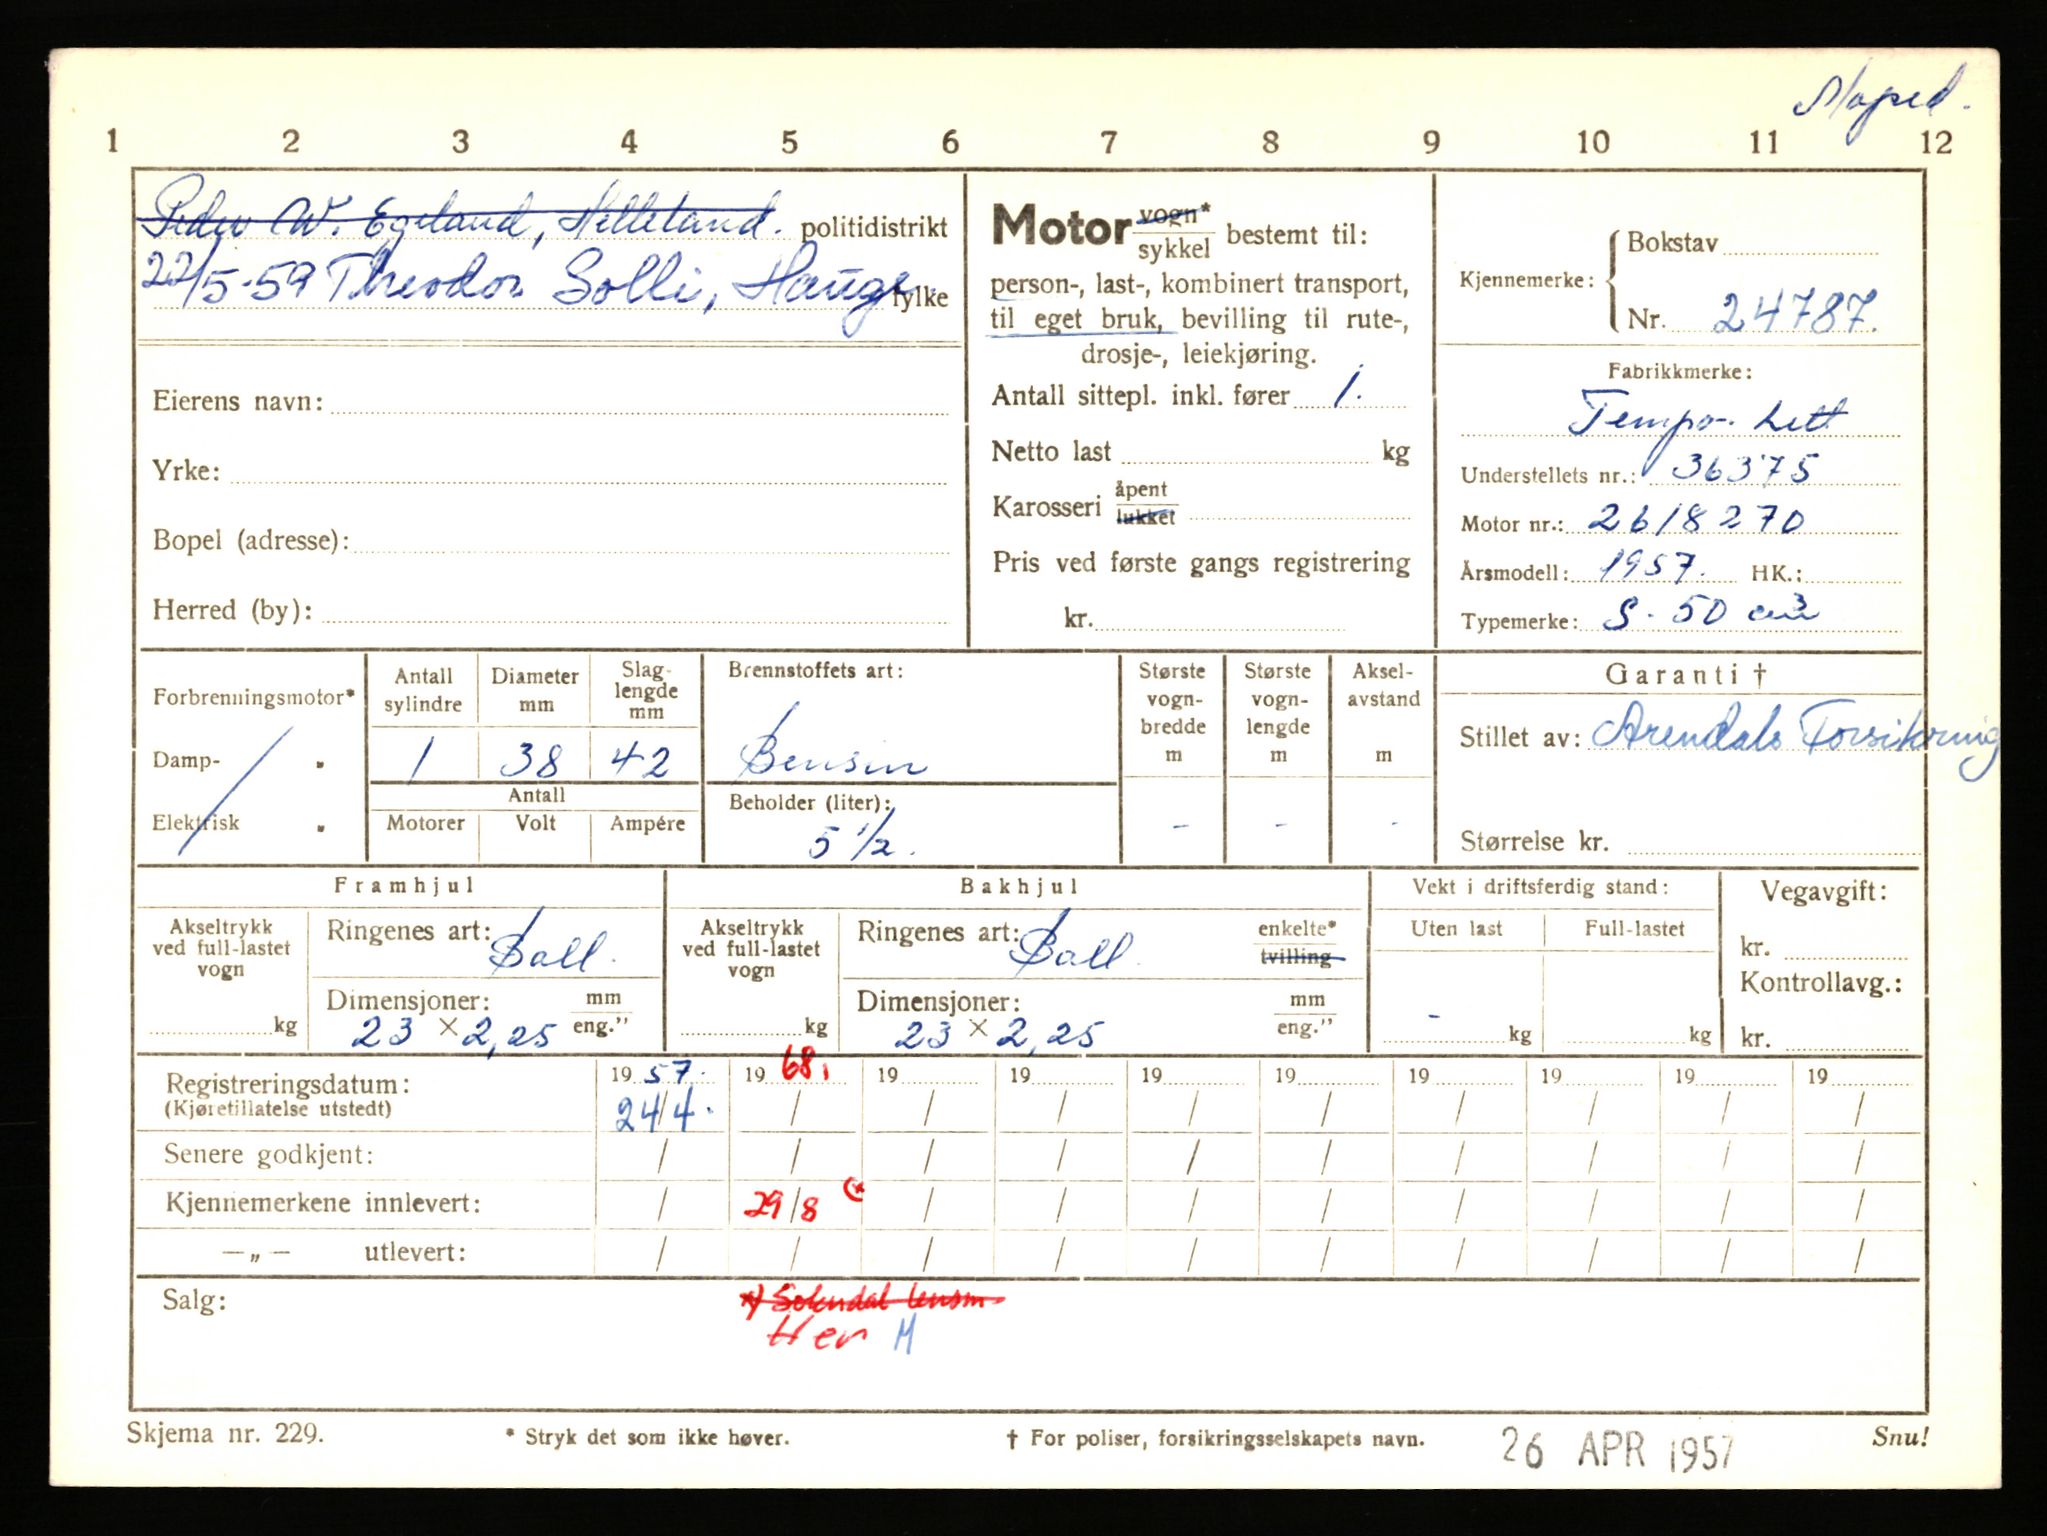 Moped.
1 2 3 4 5 6 7 8 9 10 11 12
Peder W. Egeland, Helleland. politidistrikt
22/5-59 Theodor Solli, Hauge fylke
Eierens navn:
Yrke:
Bopel (adresse):
Herred (by):
Motor vogn* sykkel bestemt til:
person-, last-, kombinert transport,
til eget bruk, bevilling til rute-,
drosje-, leiekjøring.
Antall sittepl. inkl. fører 1.
Netto last kg
Karosseri åpent lukket
Pris ved første gangs registrering
kr.
Kjennemerke: Bokstav
Nr. 24787.
Fabrikkmerke:
Tempo- Lett
Understellets nr.: 36375
Motor nr.: 2618270
Årsmodell: 1957. HK.:
Typemerke: S-50 cm3
Forbrenningsmotor*
Damp- "
Elektrisk "
Antall sylindre
1
Diameter mm
38
Slag-lengde mm
42
Antall
Motorer Volt Ampére
Brennstoffets art:
Bensin
Beholder (liter):
5 1/2.
Største vogn-bredde m
-
Største vogn-lengde m
-
Aksel-avstand m
-
Garanti †
Stillet av: Arendals Forsikring
Størrelse kr.
Framhjul
Akseltrykk ved full-lastet vogn
kg
Ringenes art: Ball.
Dimensjoner: mm eng."
23 × 2,25
Bakhjul
Akseltrykk ved full-lastet vogn
kg
Ringenes art: Ball. enkelte* tvilling
Dimensjoner: mm eng."
23 × 2,25
Vekt i driftsferdig stand:
Uten last Full-lastet
- kg kg
Vegavgift:
kr.
Kontrollavg.:
kr.
Registreringsdatum: 19 57. 19 68. 19 19 19 19 19 19 19 19
(Kjøretillatelse utstedt) 24/4. / / / / / / / / /
Senere godkjent: / / / / / / / / / /
Kjennemerkene innlevert: / 29/8 * / / / / / / / /
—„— utlevert: / / / / / / / / / /
Salg: *) Sokndal lensm
Her M
Skjema nr. 229. * Stryk det som ikke høver. † For poliser, forsikringsselskapets navn. 26 APR 1957 Snu!